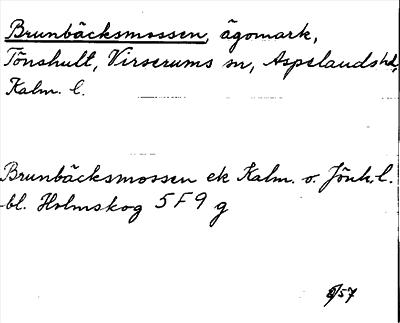 Brunbäcksmossen, ägomark,
Tönshult, Virserums sn, Aspelands hd,
Kalm. l.
Brunbäcksmossen ek Kalm. o. Jönk. l.
bl. Holmskog 5F9 g
8/57